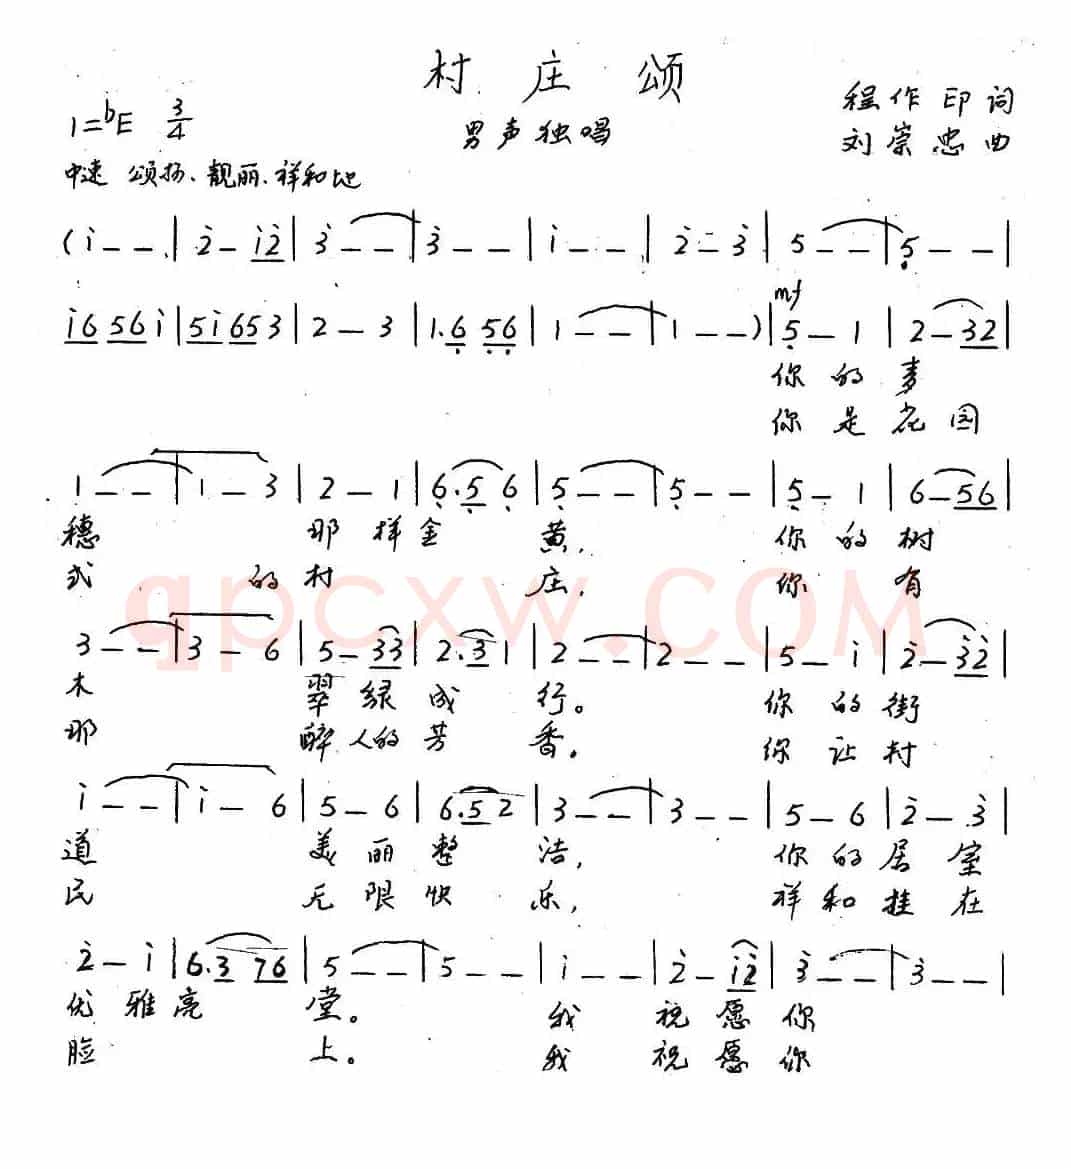 村庄颂
程作印词
1=♭E 3/4
男声独唱
刘崇忠曲
中速 颂扬、靓丽、祥和地
(i̇ – – | 2̇ – i̇2̇ | 3̇ – – | 3̇ – – | i̇ – – | 2̇ – 3̇ | 5 – – | 5̣ – – |
mf
i̇6 56 i̇ | 5i̇ 65 3 | 2 – 3 | 1. 6̣ 5̣6̣ | 1 – – | 1 – – ) | 5̣ – 1 | 2 – 32 |
你的麦
你是花园
1 – – | 1 – 3 | 2 – 1 | 6̣. 5̣ 6̣ | 5̣ – – | 5̣ – – | 5̣ – 1 | 6 – 56 |
穗 那样金 黄, 你的树
式 的村 庄, 你 有
qpcxw.COM
3 – – | 3 – 6 | 5 – 33 | 2. 3 1 | 2 – – | 2 – – | 5 – i̇ | 2̇ – 3̇2̇ |
木 翠绿成 行。 你的街
那 醉人的芳 香。 你让村
i̇ – – | i̇ – 6 | 5 – 6 | 6. 5 2 | 3 – – | 3 – – | 5 – 6 | 2̇ – 3̇ |
道 美丽整 洁, 你的居室
民 无限快 乐, 祥和挂在
2̇ – i̇ | 6. 3 76 | 5 – – | 5 – – | i̇ – – | 2̇ – i̇2̇ | 3̇ – – | 3̇ – – |
优雅亮 堂。 我 祝愿你
脸 上。 我 祝愿你